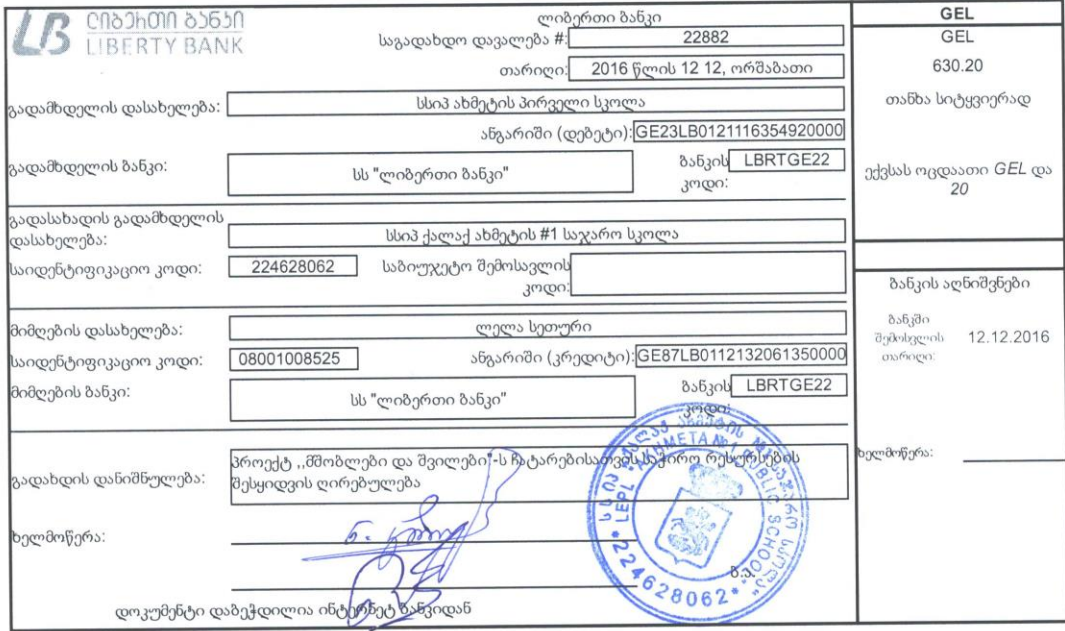 ლიბერთი ბანკი
LIBERTY BANK
ლიბერთი ბანკი
საგადახდო დავალება #: 22882
თარიღი: 2016 წლის 12 12, ორშაბათი
გადამხდელის დასახელება: სსიპ ახმეტის პირველი სკოლა
ანგარიში (დებეტი): GE23LB0121116354920000
გადამხდელის ბანკი: სს "ლიბერთი ბანკი" ბანკის კოდი: LBRTGE22
გადასახადის გადამხდელის დასახელება: სსიპ ქალაქ ახმეტის #1 საჯარო სკოლა
საიდენტიფიკაციო კოდი: 224628062 საბიუჯეტო შემოსავლის კოდი:
მიმღების დასახელება: ლელა სეთური
საიდენტიფიკაციო კოდი: 08001008525 ანგარიში (კრედიტი): GE87LB0112132061350000
მიმღების ბანკი: სს "ლიბერთი ბანკი" ბანკის კოდი: LBRTGE22
გადახდის დანიშნულება: პროექტ ,,მშობლები და შვილები"-ს ჩატარებისათვის საჭირო რესურსების
შესყიდვის ღირებულება
ხელმოწერა:
ბ.ა.
დოკუმენტი დაბეჭდილია ინტერნეტ ბანკიდან
GEL
GEL
630.20
თანხა სიტყვიერად
ექვსას ოცდაათი GEL და
20
ბანკის აღნიშვნები
ბანკში
შემოსვლის
თარიღი: 12.12.2016
ხელმოწერა:
LEPL AKHMETA №1 PUBLIC SCHOOL
224628062